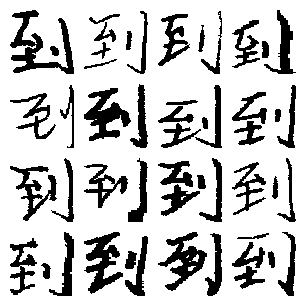 到到到到
到到到到
到到到到
到到到到